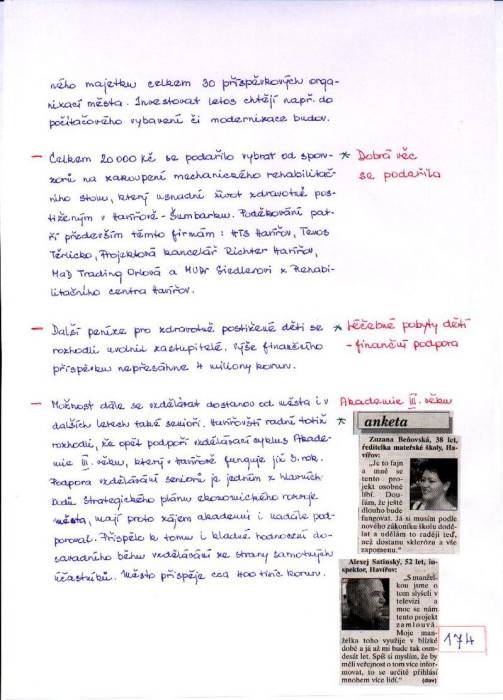 ného majetku celkem 30 příspěvkových orga-
nizací města. Investovat letos chtějí např. do
počítačového vybavení či modernizace budov.
– Celkem 20 000 Kč se podařilo vybrat od spon-
zorů na zakoupení mechanického rehabilitač-
ního stolu, který usnadní život zdravotně pos-
tiženým v Havířově - Šumbarku. Poděkování pat-
ří především těmto firmám : HTS Havířov, Tenos
Těrlicko, Projektová kancelář Richter Havířov,
MaD Trading Orlová a MUDr Siedlerovi z Rehabi-
litačního centra Havířov.
* Dobrá věc
se podařila
– Další peníze pro zdravotně postižené děti se
rozhodli uvolnit zastupitelé. Výše finančního
příspěvku nepřesáhne 4 miliony korun.
* Léčebné pobyty dětí
- finanční podpora
– Možnost dále se vzdělávat dostanou od města i v
dalších letech také senioři. Havířovští radní totiž
rozhodli, že opět podpoří vzdělávací cyklus Akade-
mie III. věku, který v Havířově funguje již 5. rok.
Podpora vzdělávání seniorů je jedním z hlavních
bodů Strategického plánu ekonomického rozvoje
města, mají proto zájem akademii i nadále pod-
porovat. Přispělo k tomu i kladné hodnocení do-
savadního běhu vzdělávání ze strany samotných
účastníků. Město přispěje cca 400 tisíc korun.
Akademie III. věku
*
anketa
Zuzana Beňovská, 38 let,
ředitelka mateřské školy, Ha-
vířov:
„Je to fajn
a mně se
tento pro-
jekt osobně
líbí. Dou-
fám, že ještě
dlouho bude
fungovat. Já si musím podle
nového zákoníku školu dodě-
lat a udělám to raději teď,
než dostanu sklerózu a vše
zapomenu.“
Alexej Satinský, 52 let, in-
spektor, Havířov:
„S manžel-
kou jsme o
tom slyšeli v
televizi a
moc se nám
tento projekt
zamlouvá.
Moje man-
želka toho využije v blízké
době a já až mi bude tak osm-
desát let. Spíš si myslím, že by
měli veřejnost o tom více infor-
movat, to se určitě přihlásí
mnohem více lidí.“ (dav)
174